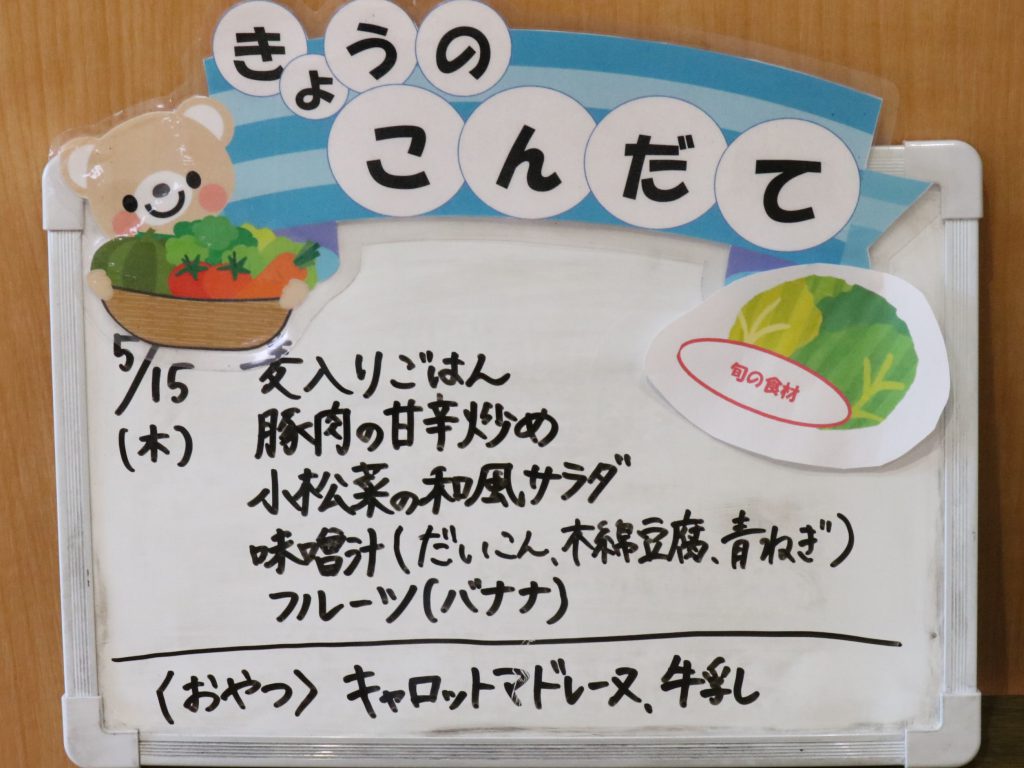 きょうの
こんだて
旬の食材
5/15 麦入りごはん
(木) 豚肉の甘辛炒め
小松菜の和風サラダ
味噌汁(だいこん、木綿豆腐、青ねぎ)
フルーツ(バナナ)
〈おやつ〉 キャロットマドレーヌ、牛乳